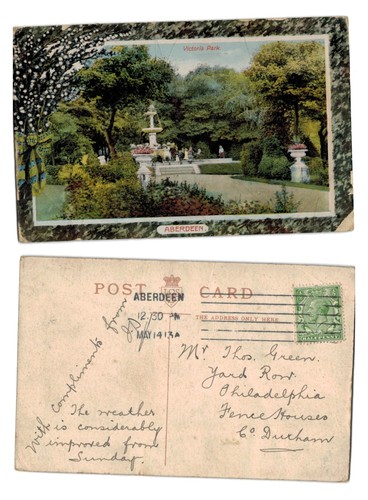 Victoria Park
ABERDEEN
POST CARD
THE ADDRESS ONLY HERE
ABERDEEN
12.30 PM
MAY 14 13A
Mr Thos. Green.
Yard Row.
Philadelphia
Fence Houses
Co Durham
With compliments from
The weather
is considerably
improved from
Sunday.